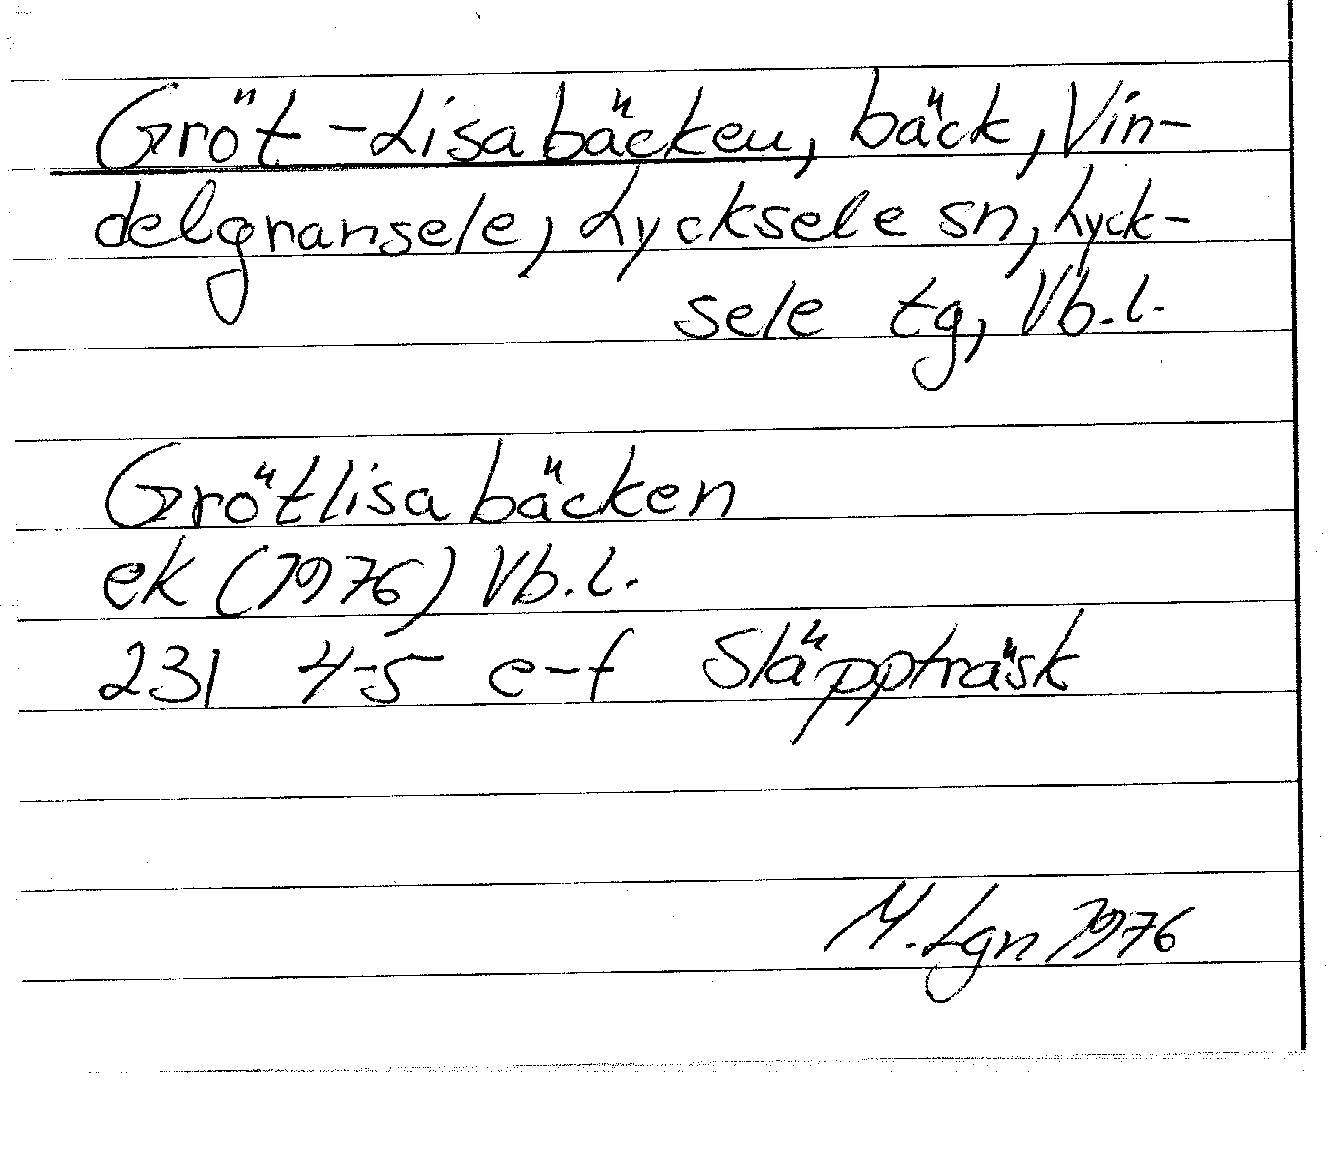 Gröt-Lisabäcken, bäck, Vin-
delgransele, Lycksele sn, Lyck-
sele tg, Vb.l.
Grötlisabäcken
ek (1976) Vb.l.
231 4-5 e-f Släppträsk
M. Lgn 1976